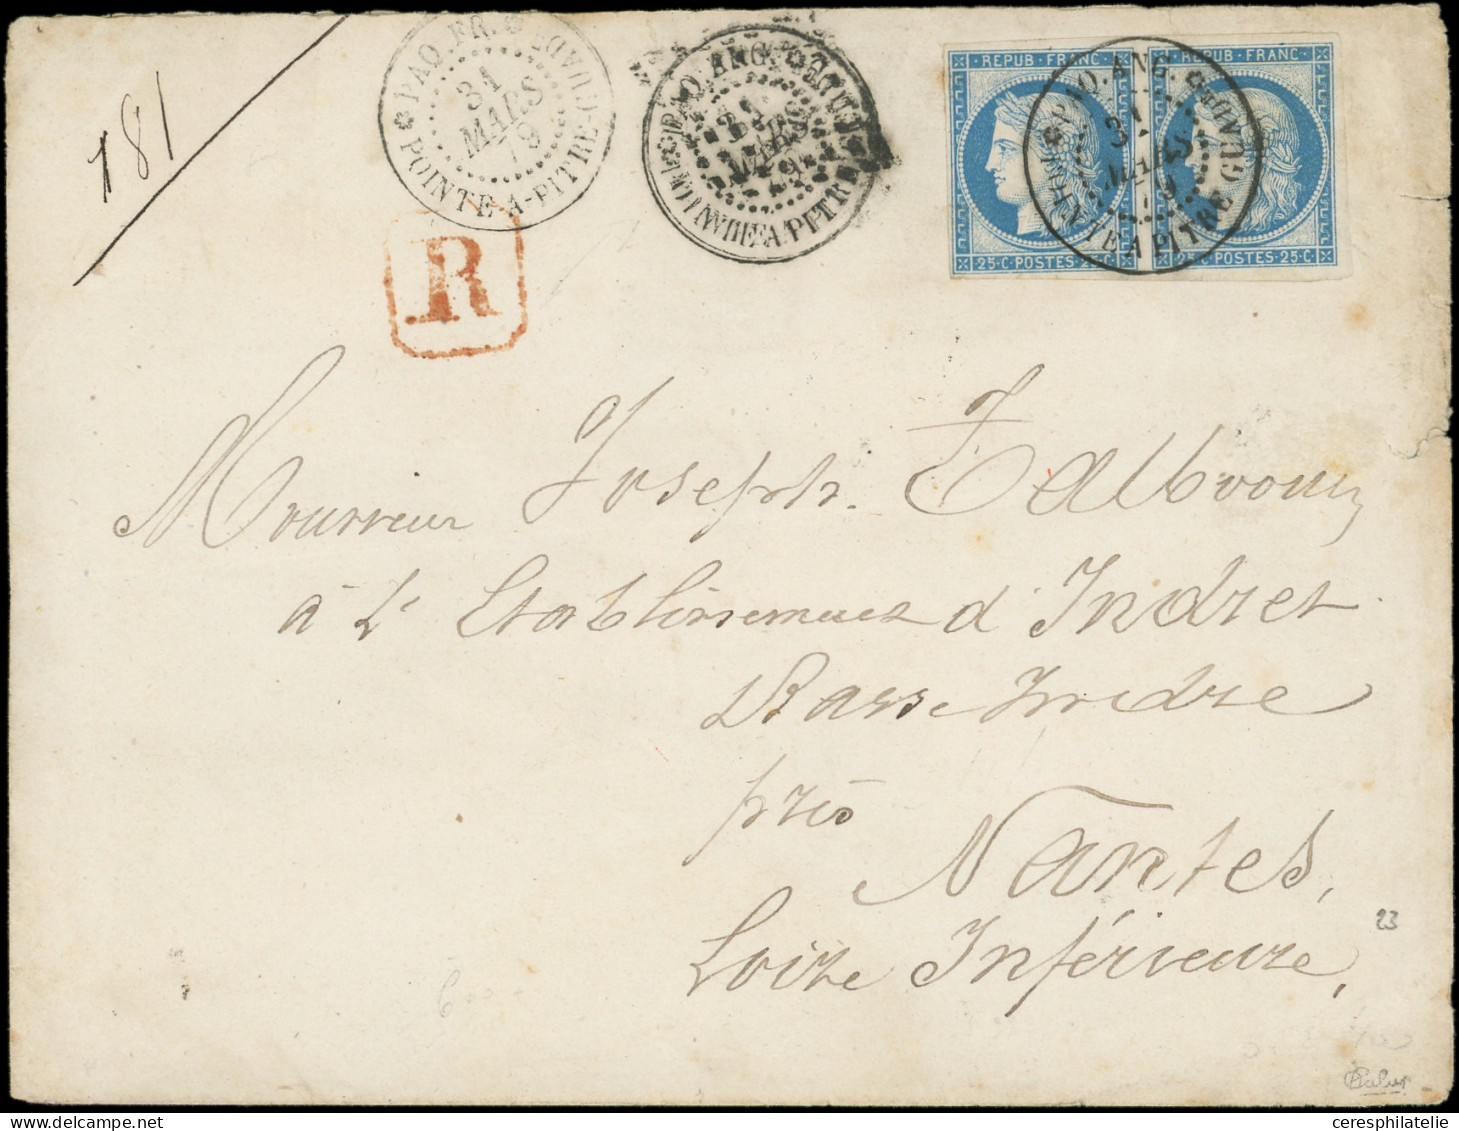 181
PAQ. FR. POINTE-A-PITRE-GUAD.
31
MARS
79
PAQ. ANG. POINTE A PITRE GUAD.
31
MARS
79
REPUB·FRANC·
REPUB·FRANC·
25·C·POSTES·25·C·
25·C·POSTES·25·C·
PAQ. ANG. POINTE A PITRE GUADP
31
MARS
79
R
Monsieur Joseph
à L' Etablissement d'Indret
Basse Indre
près
Nantes,
Loire Inférieure,
23
Calves
ceresphilatelie